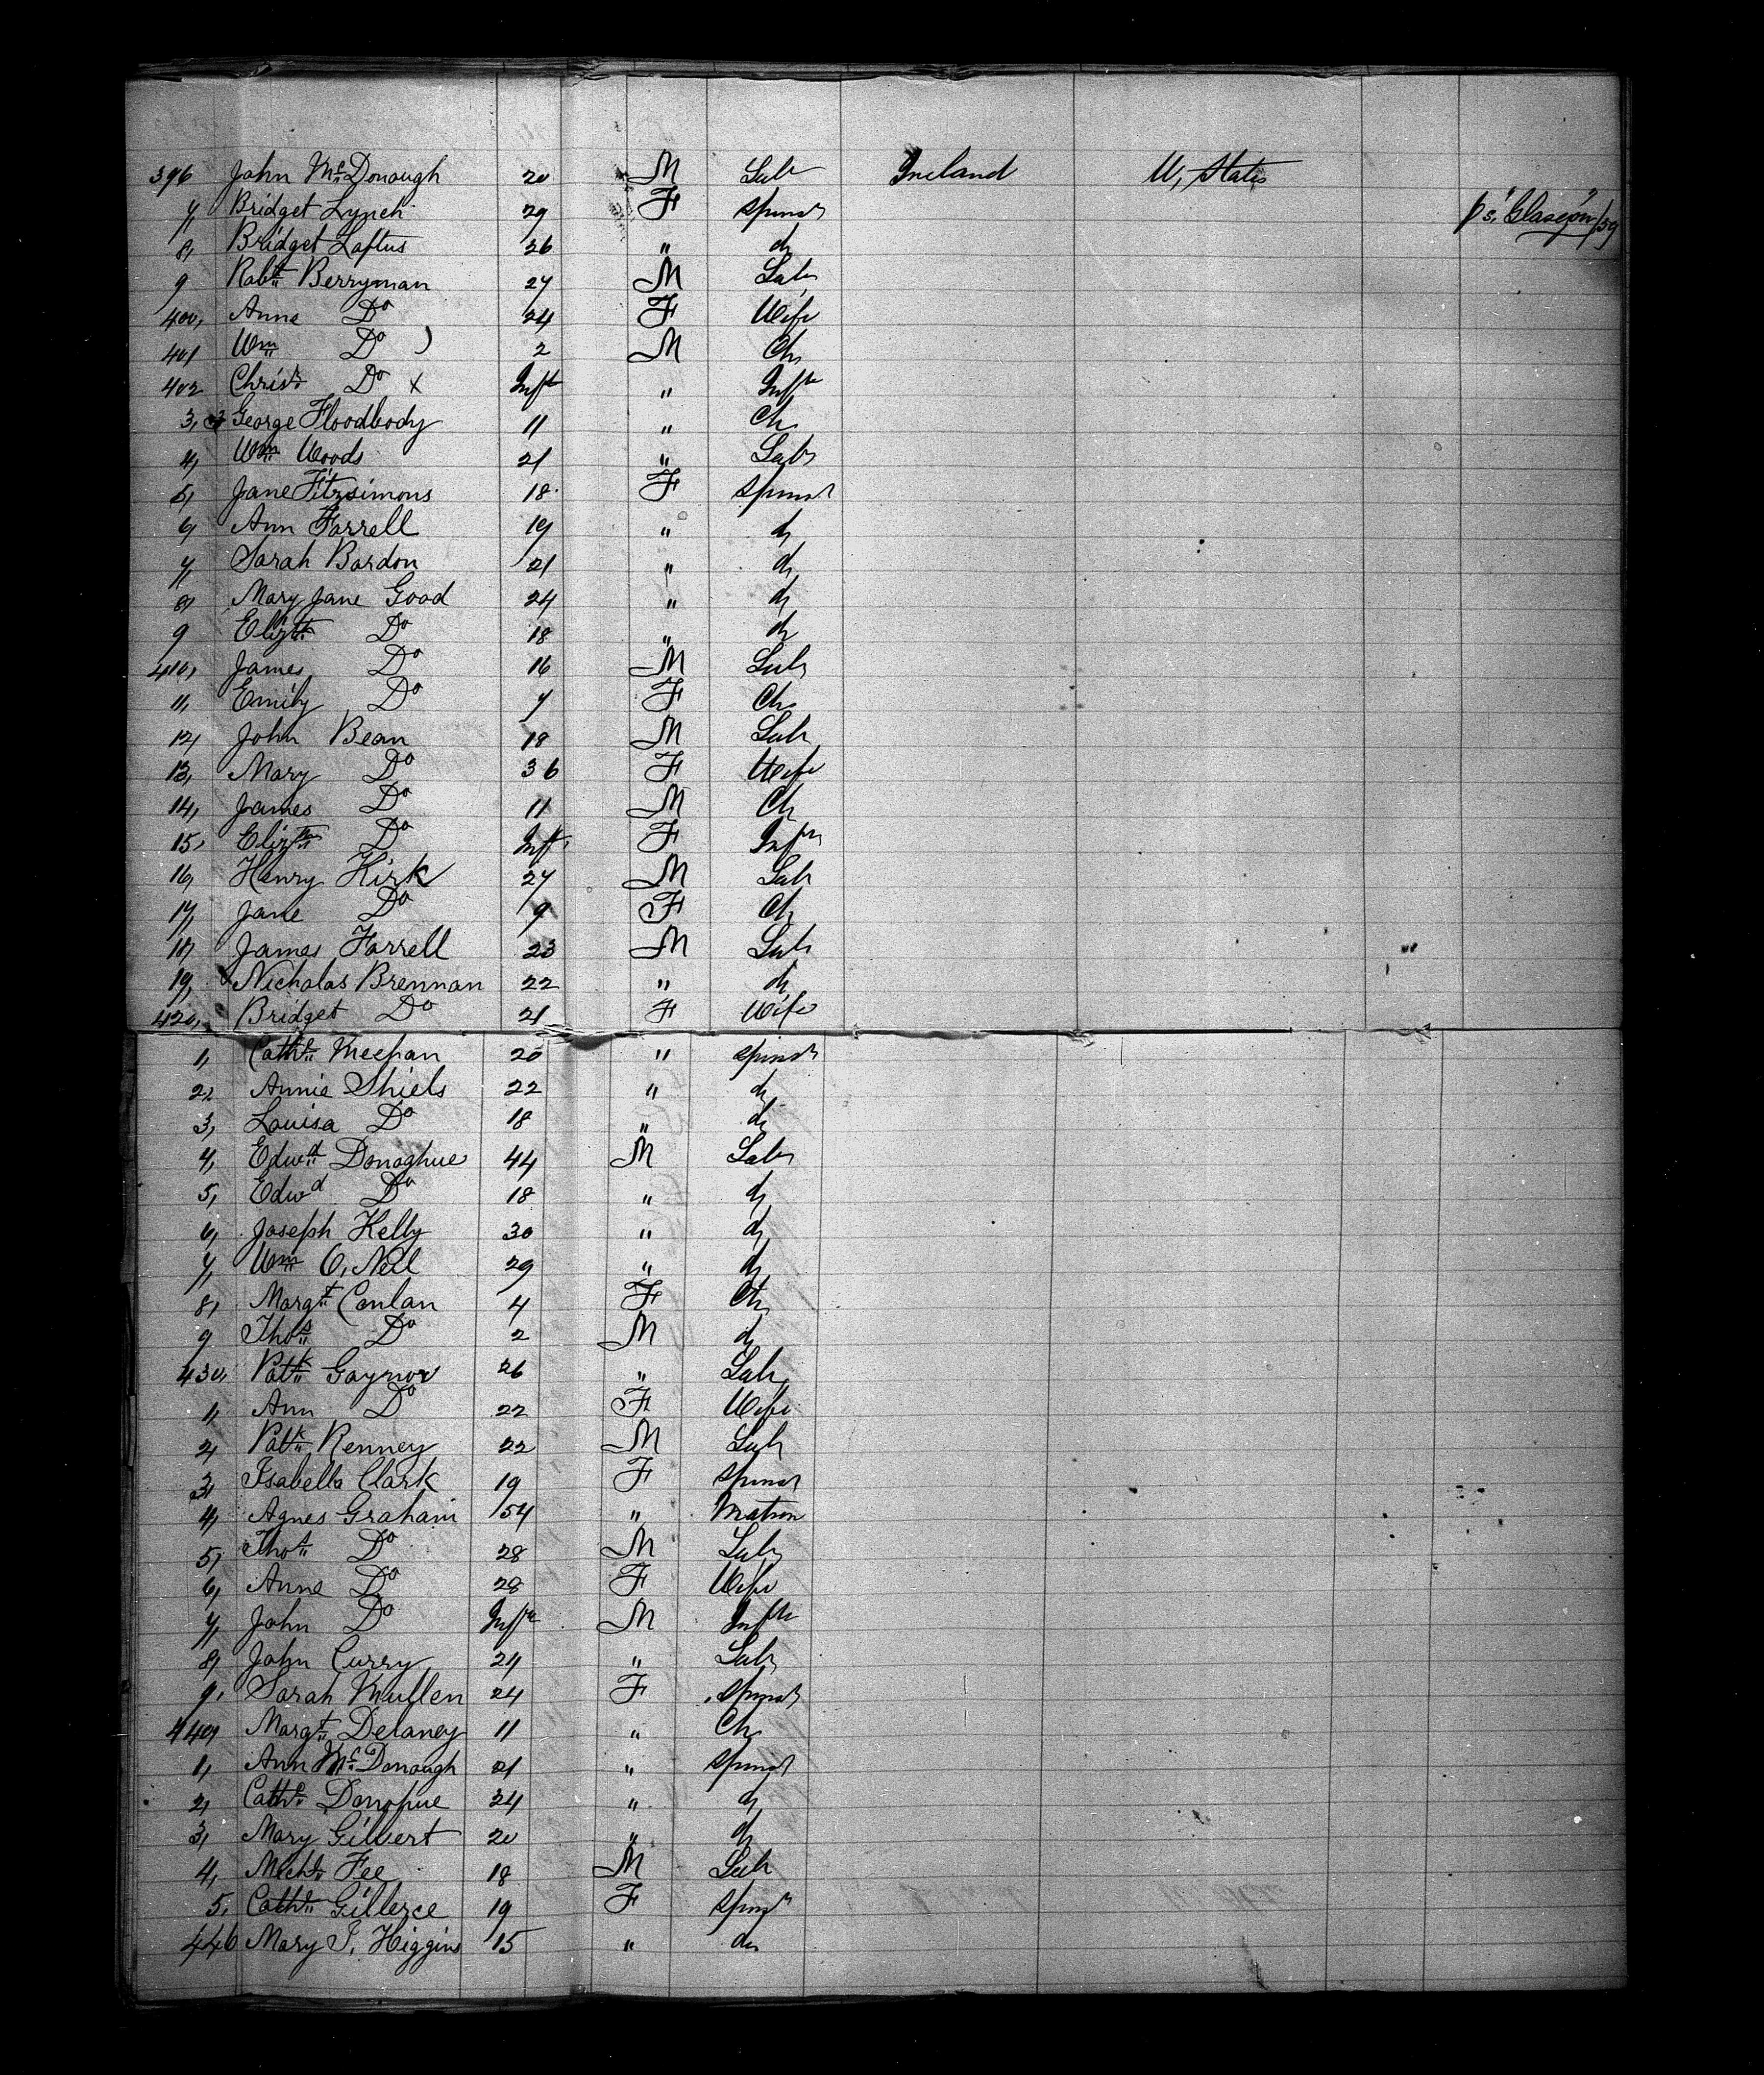 396 John McDonough 20 M Labr Ireland U, States
7, Bridget Lynch 29 F Spinsr p s, "Glasgow" /59
8, Bridget Loftus 26 " do
9 Robt Berryman 27 M Labr
400, Anne Do 24 F Wife
401 Wm Do 2 M Ch
402 Christr Do x Inft " Inft
3, George Floodbody 11 " Ch
4, Wm Woods 21 " Labr
5, Jane Fitzsimons 18 F Spinsr
6, Ann Farrell 19 " do
7, Sarah Bardon 21 " do
8, Mary Jane Good 24 " do
9 Elizth Do 18 " do
410, James Do 16 M Labr
11, Emily Do 7 F Ch
12, John Bean 18 M Labr
13, Mary Do 36 F Wife
14, James Do 11 M Ch
15, Elizth Do Inft F Inft
16, Henry Kirk 27 M Labr
17, Jane Do 9 F Ch
18, James Farrell 23 M Labr
19, Nicholas Brennan 22 " do
420, Bridget Do 21 F Wife
1, Cathe Meehan 20 " Spinsr
2, Annie Shiels 22 " do
3, Louisa Do 18 " do
4, Edwd Donoghue 44 M Labr
5, Edwd Do 18 " do
6, Joseph Kelly 30 " do
7, Wm O, Neil 29 " do
8, Margt Conlan 4 F Ch
9 Thos Do 2 M do
430, Patk Gaynor 26 " Labr
1, Ann Do 22 F Wife
2, Patk Renney 22 M Labr
3, Isabella Clark 19 F Spinsr
4, Agnes Graham 54 " Matron
5, Thos Do 28 M Labr
6, Anne Do 28 F Wife
7, John Do Inft M Inft
8, John Curry 24 " Labr
9, Sarah Mullen 24 F Spinsr
440, Margt Delaney 11 " Ch
1, Ann McDonough 21 " Spinsr
2, Cathe Donohue 24 " do
3, Mary Gilbert 20 " do
4, Michl Fee 18 M Labr
5, Cathe Gillerce 19 F Spinsr
446 Mary J, Higgins 15 " do